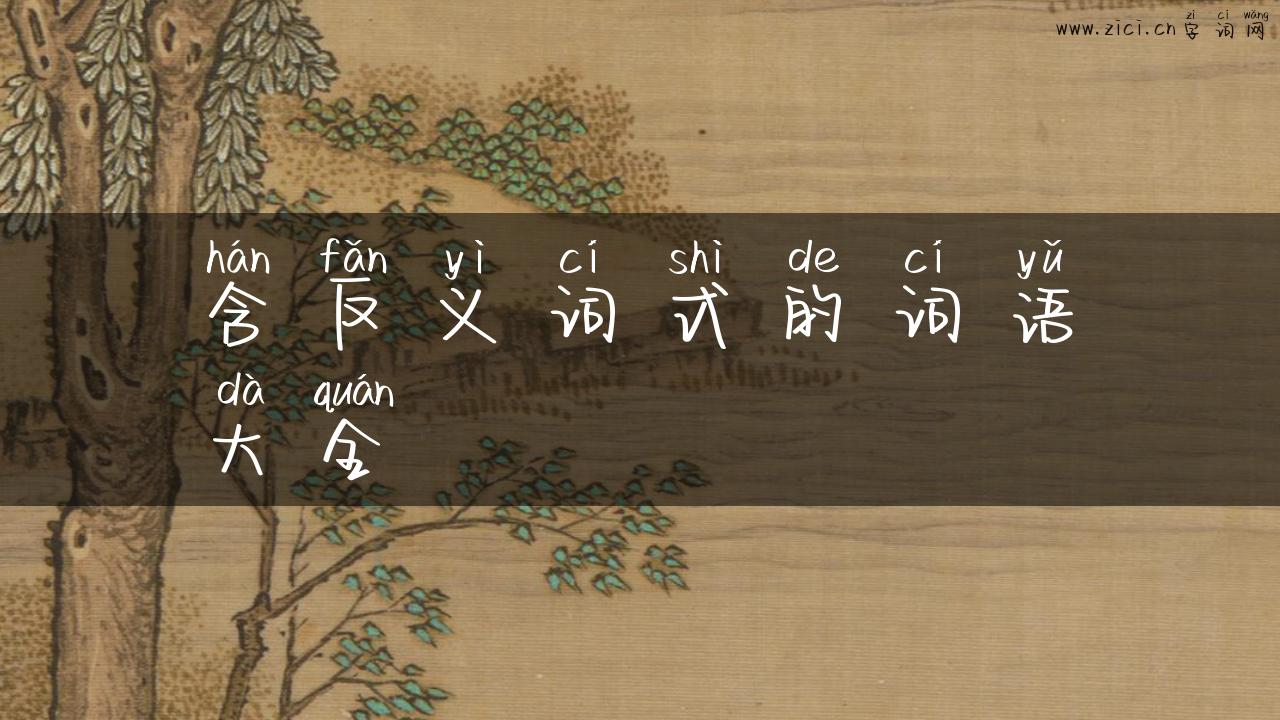 zì cí wǎng
www.zici.cn 字词网
hán fǎn yì cí shì de cí yǔ
含反义词式的词语
dà quán
大全